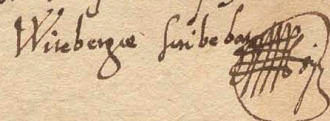 Witebergæ scribebat